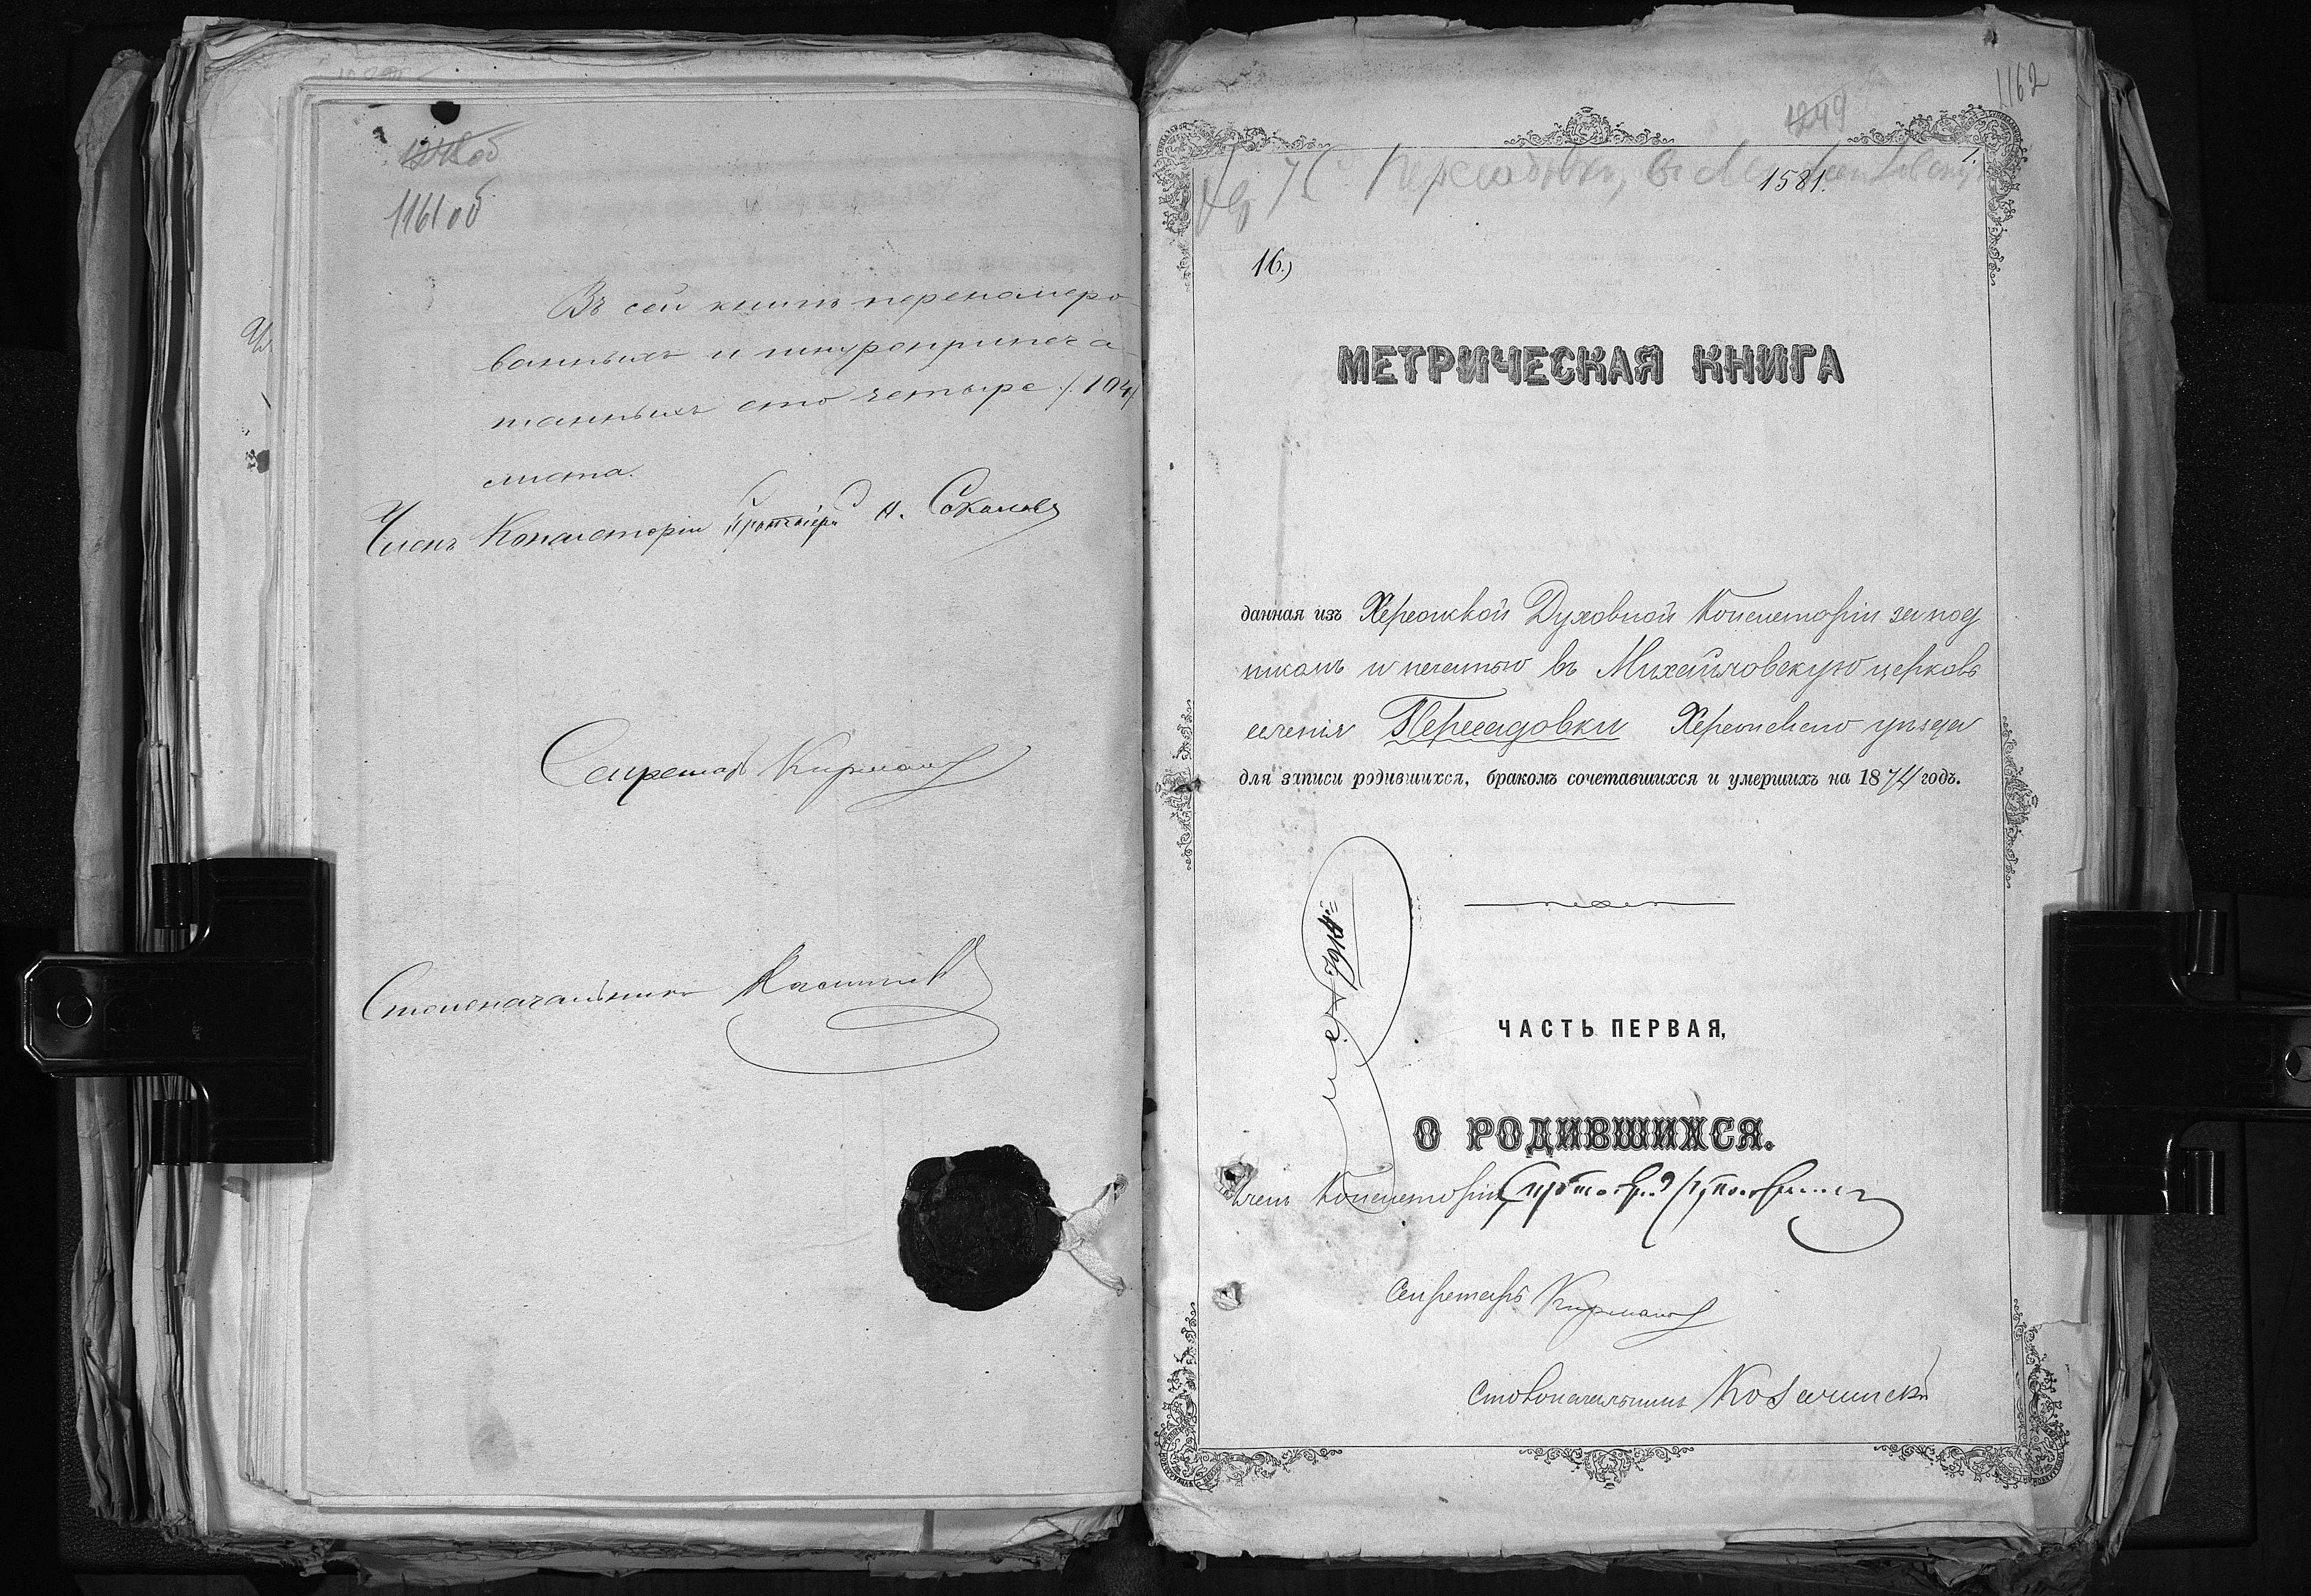 1161 об
Въ сей книгѣ перенумеро-
ванныхъ и шнуропринеча-
танныхъ сто четыре (104)
листа.
Членъ Консисторіи Протоіерей А. Соколовъ
Секретарь
Столоначальникъ
1162
1249
1.
Пересадовка,
1581.
16.)
МЕТРИЧЕСКАЯ КНИГА
данная изъ Херсонской Духовной Консисторіи за под
писомъ и печатью въ Михайловскую церковь
селенія Пересадовки Херсонскаго уѣзда
для записи родившихся, бракомъ сочетавшихся и умершихъ на 1874 годъ.
ЧАСТЬ ПЕРВАЯ,
О РОДИВШИХСЯ.
Членъ Консисторіи
Секретарь
Столоначальникъ